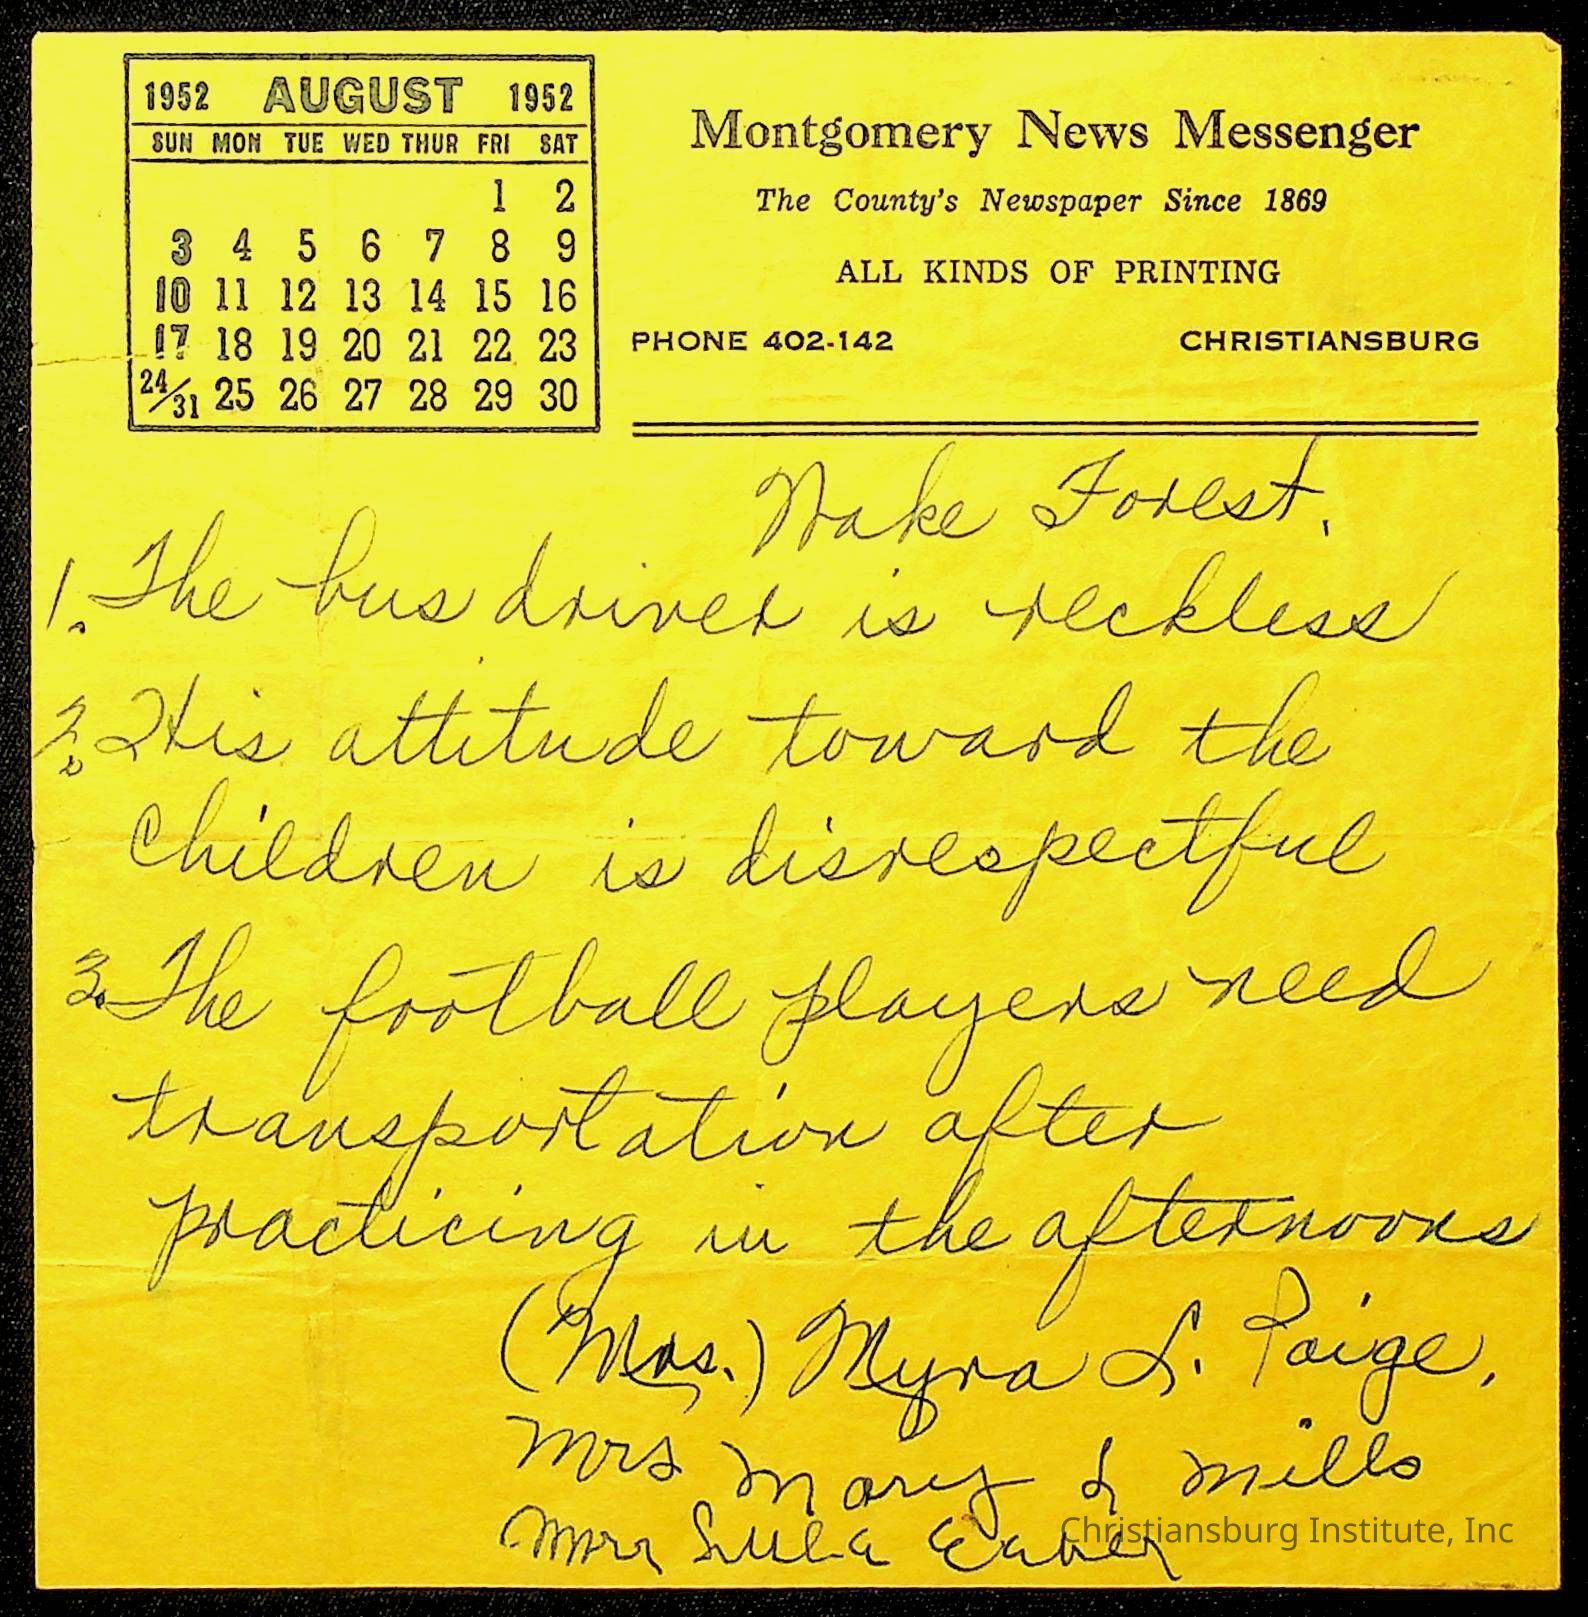 1952 AUGUST 1952
SUN MON TUE WED THUR FRI SAT
1 2
3 4 5 6 7 8 9
10 11 12 13 14 15 16
17 18 19 20 21 22 23
24/31 25 26 27 28 29 30
Montgomery News Messenger
The County's Newspaper Since 1869
ALL KINDS OF PRINTING
PHONE 402-142 CHRISTIANSBURG
Wake Forest.
1. The bus driver is reckless
2. His attitude toward the
Children is disrespectful
3. The football players need
transportation after
practicing in the afternoons
(Mrs.) Myra L. Paige.
Mrs Mary L Mills
Mrs Lula
Christiansburg Institute, Inc